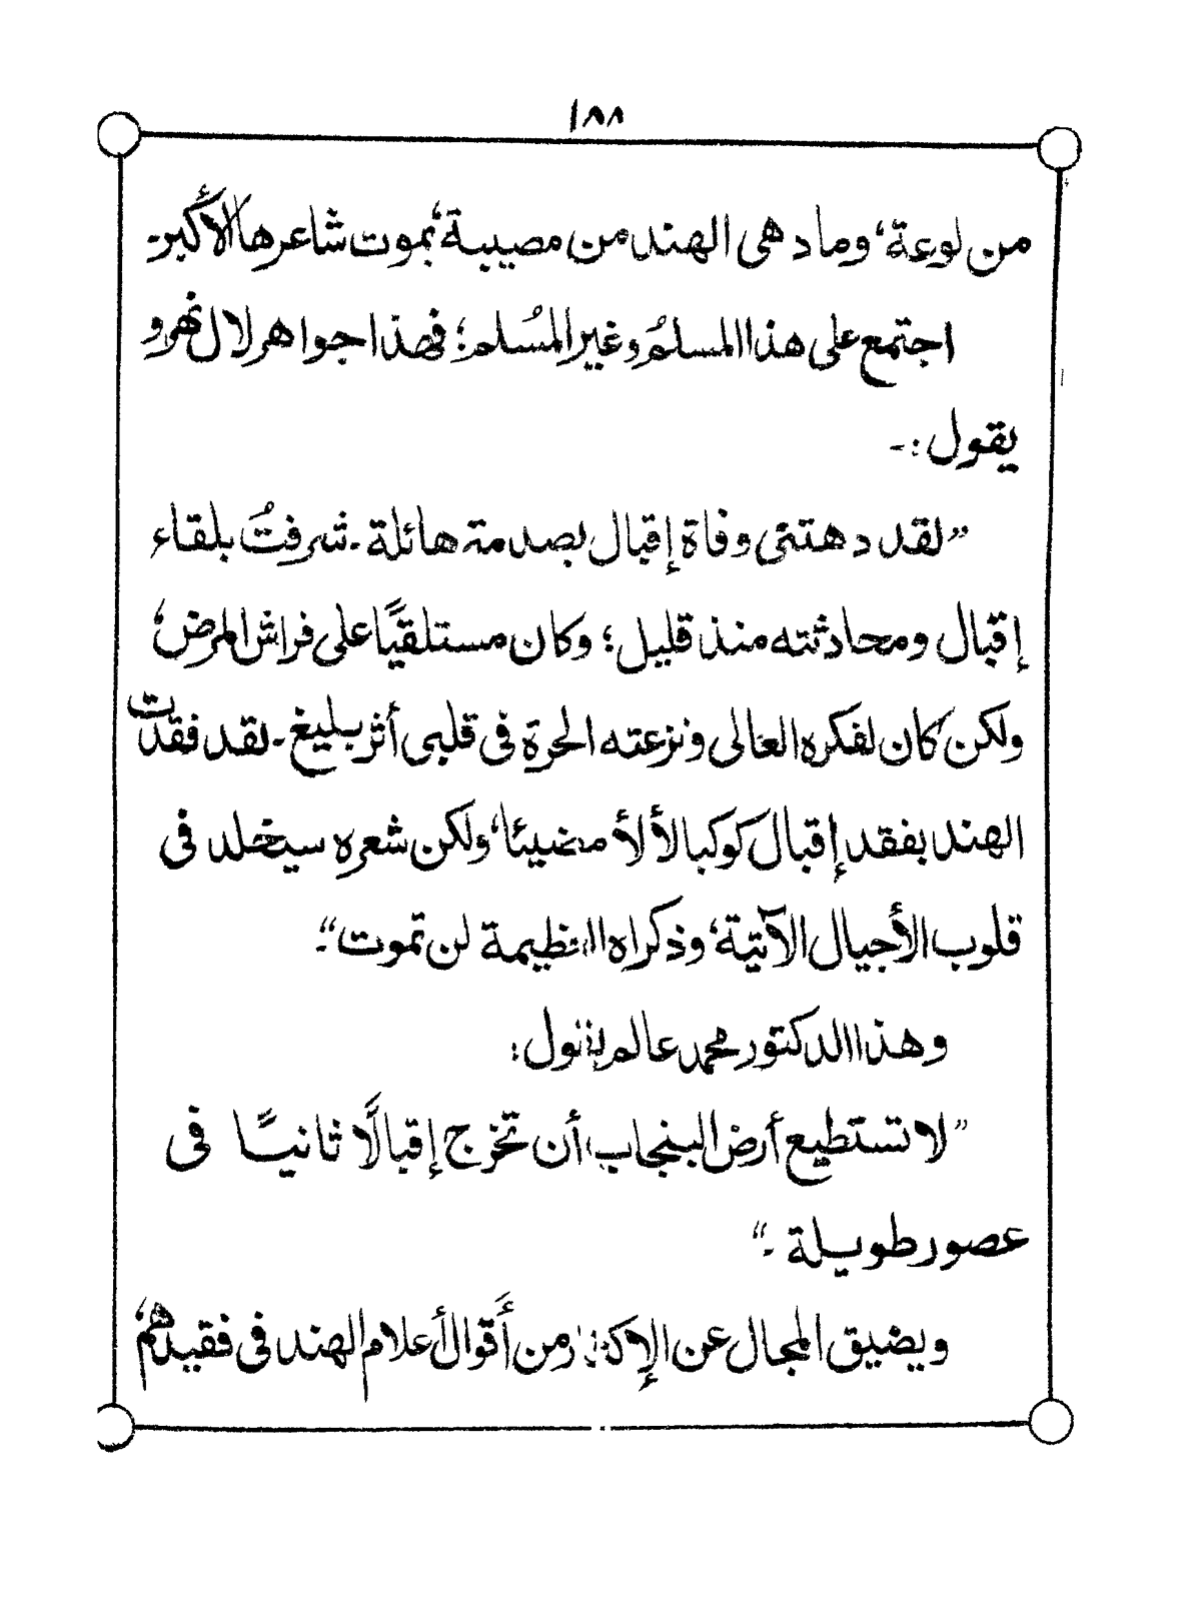 ١٨٨
من لوعة، وما دهى الهند من مصيبة، بموت شاعرها الأكبر۔
اجتمع على هذا المسلمُ وغير المُسلم؛ فهذا جواهر لال نهرو
يقول :۔
”لقد دهتنى وفاة إقبال بصدمة هائلة ۔ شرفتُ بلقاء
إقبال ومحادثته منذ قليل؛ وكان مستلقيًا على فراش المرض،
ولكن كان لفكره العالى ونزعته الحرة فى قلبى أثر بليغ ۔ لقد فقدت
الهند بفقد إقبال كوكبا لألأ مضيئا، ولكن شعره سيخلد فى
قلوب الأجيال الآتية، وذكراه العظيمة لن تموت“۔
وهذا الدكتور محمد عالم يقول :
”لا تستطيع أرض البنجاب أن تخرج إقبالًا ثانيًا فى
عصور طويلة ۔“
ويضيق المجال عن الإكثار من أقوال أعلام الهند فى فقيدهم،